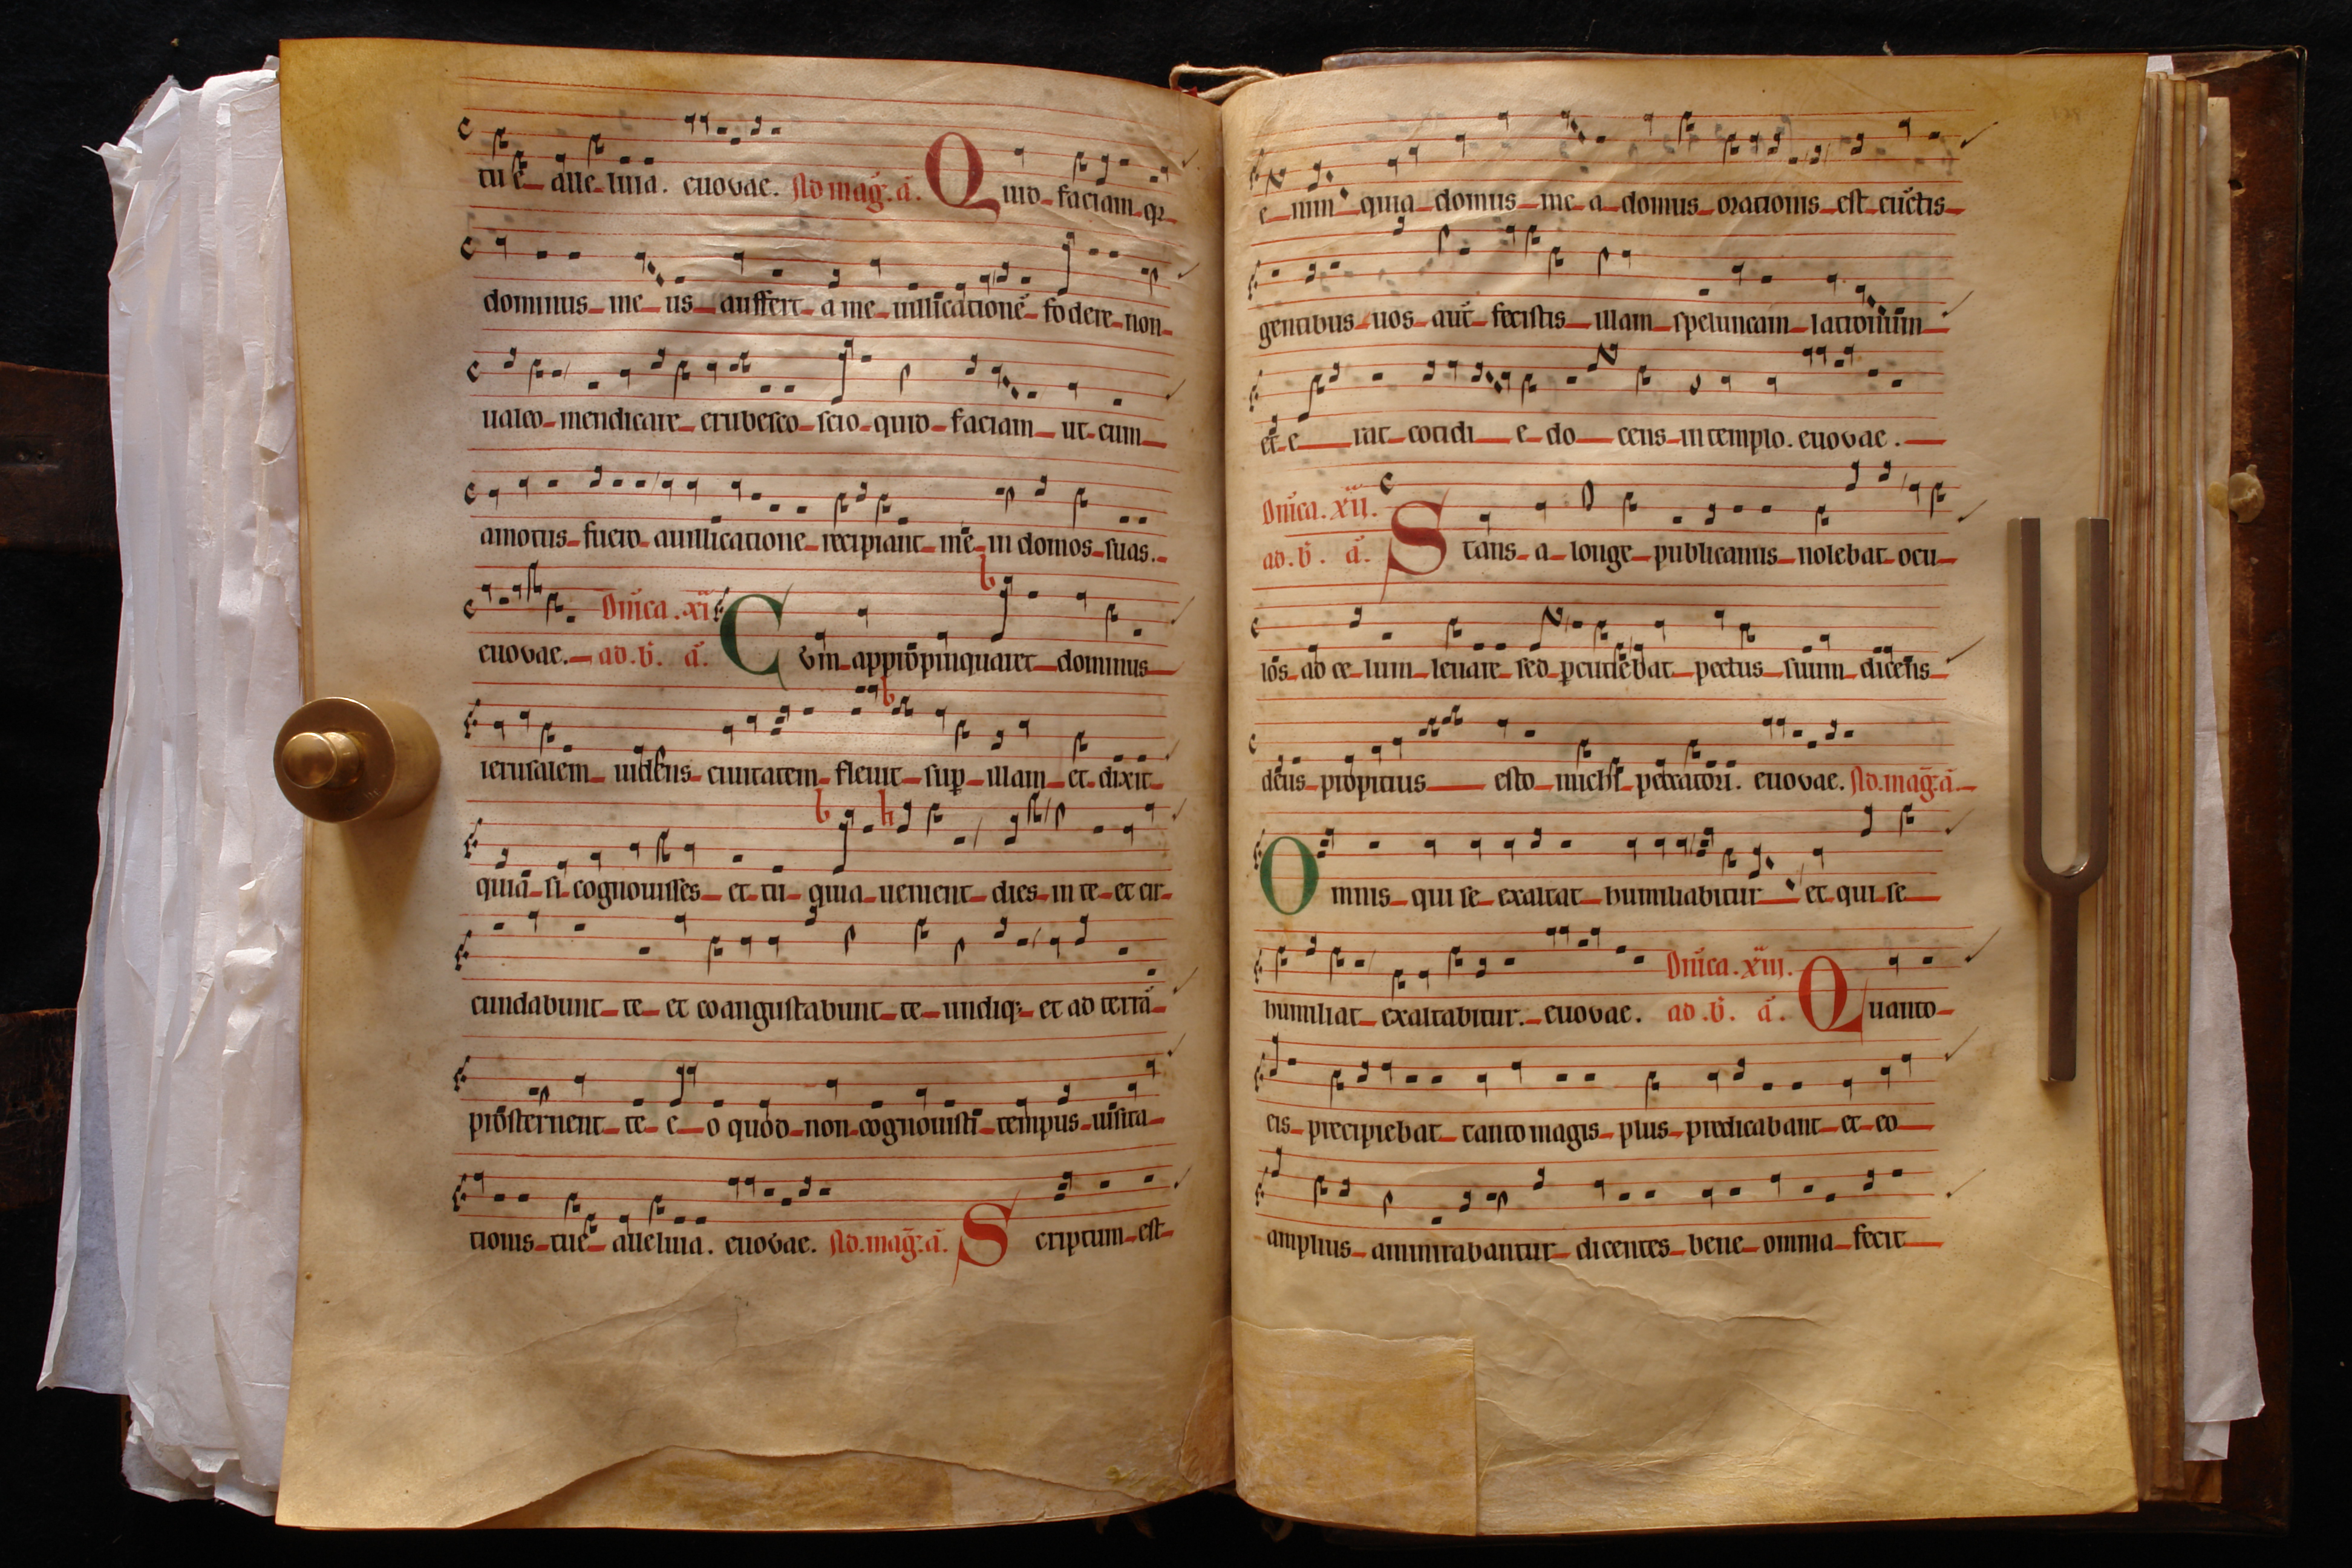 tue alleluia. euouae. Ad mag̃. ã. Quid faciam q̃
dominus meus auffert a me uillicationē fodere non
ualeo mendicare erubesco scio quid faciam ut cum
amotus fuero auillicatione recipiant me in domos suas.
euouae. Dñica. xi. ad. b̃. ã. Cum appropinquaret dominus
ierusalem uidens ciuitatem fleuit sup illam et dixit
quia si cognouisses et tu quia uenient dies in te et cir
cundabunt te et coangustabunt te undiq; et ad terrā
prosternent te eo quod non cognouisti tempus uisita
tionis tue alleluia. euouae. Ad. mag̃. ã. Scriptum est
enim quia domus mea domus orationis est cūctis
gentibus uos aut̃ fecistis illam speluncam latronum
et erat cotidie docens in templo. euouae.
Dñica. xii. ad. b̃. ã. Stans a longe publicanus nolebat ocu
los ad celum leuare sed pcutiebat pectus suum dicens
deus propitius esto michi peccatori. euouae. Ad. mag̃. ã.
Omnis qui se exaltat humiliabitur et qui se
humiliat exaltabitur. euouae. Dñica. xiii. ad. b̃. ã. Quanto
eis precipiebat tanto magis plus predicabant et eo
amplius ammirabantur dicentes bene omnia fecit